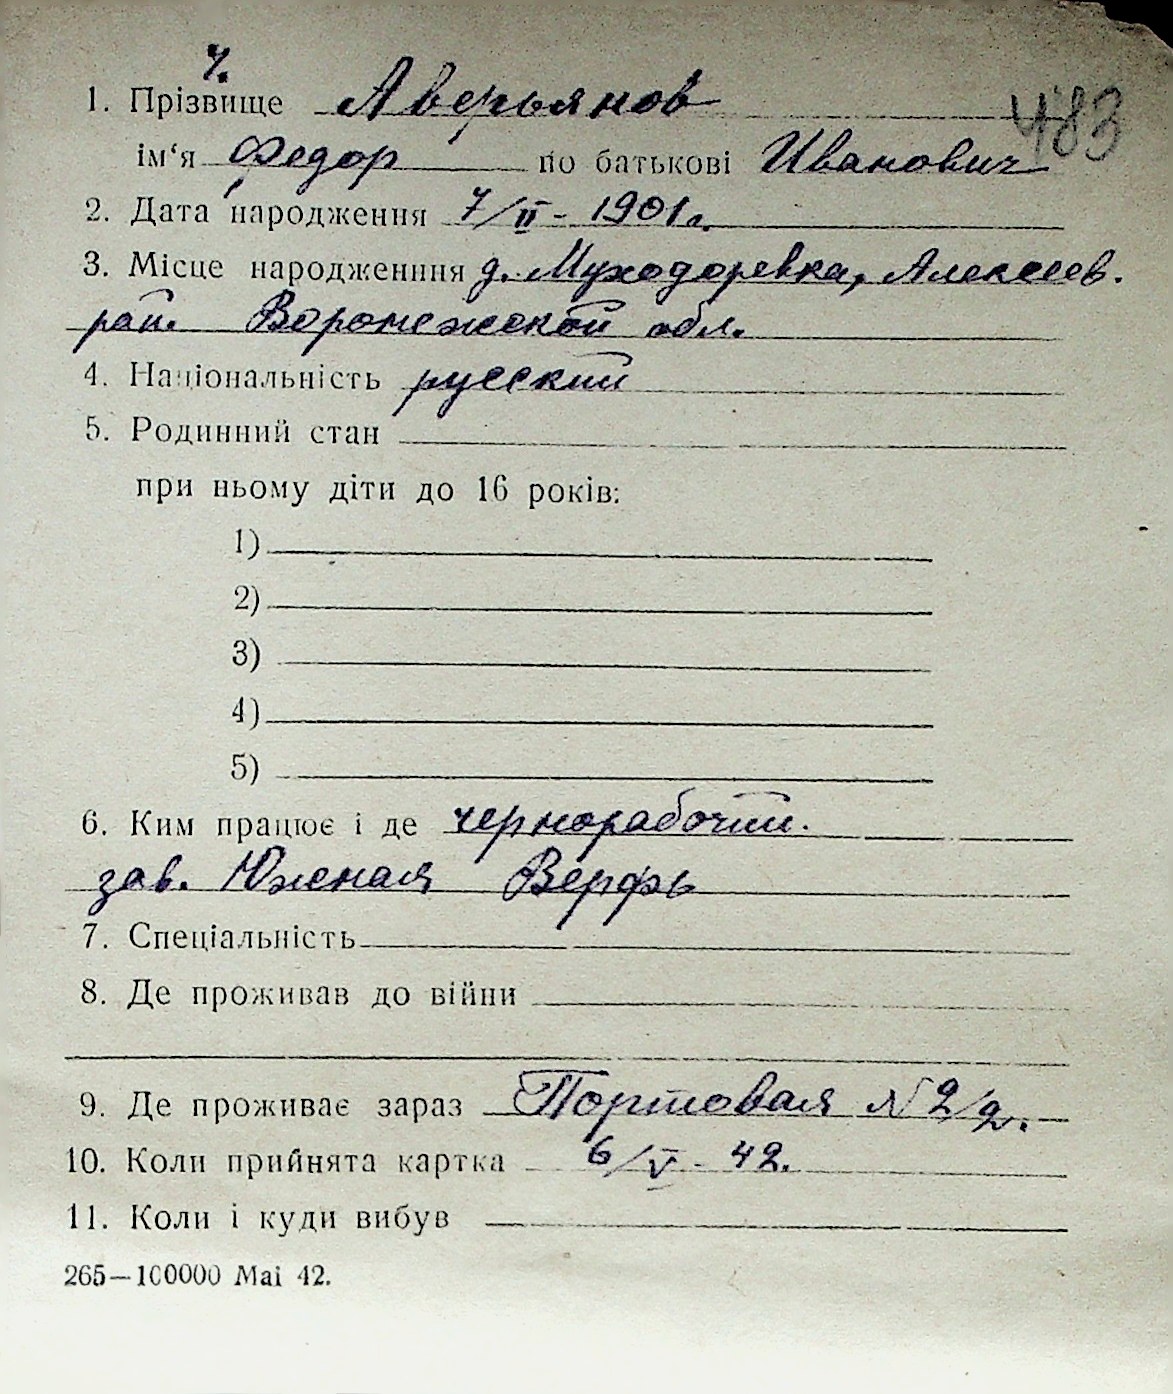 ч.
1. Прізвище Аверьянов
483
ім‘я Федор по батькові Иванович
2. Дата народження 7/II - 1901 г.
3. Місце народженння д. Муходоревка, Алексеев.
рай. Воронежской обл.
4. Національність русский
5. Родинний стан
при ньому діти до 16 років:
1)
2)
3)
4)
5)
6. Ким працює і де чернорабочий.
зав. Южная Верфь
7. Спеціальність
8. Де проживав до війни
9. Де проживає зараз Портовая № 2/2.
10. Коли прийнята картка 6/V - 42.
11. Коли і куди вибув
265—100000 Mai 42.